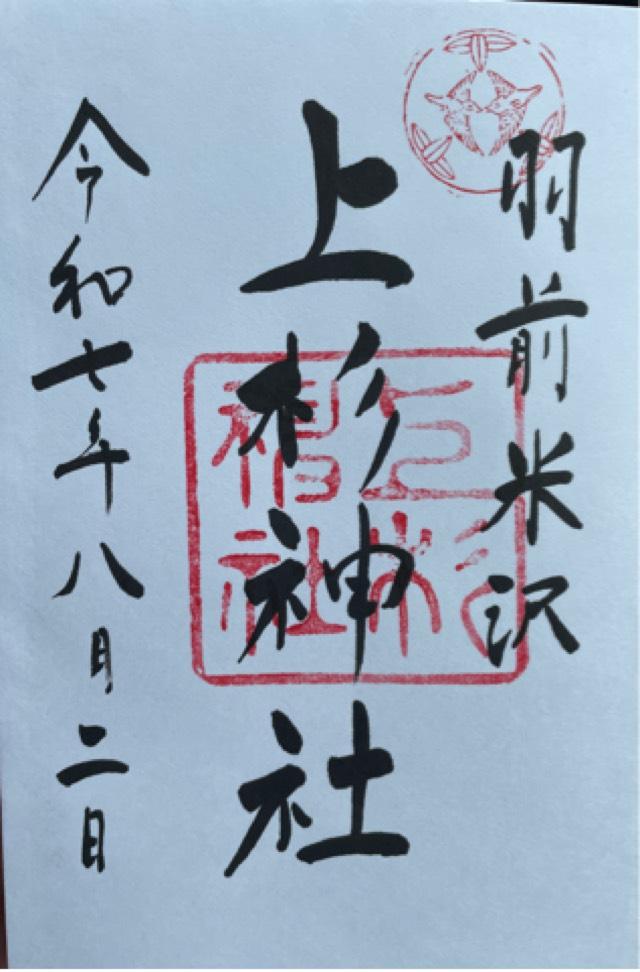 羽前米沢
上杉神社
令和七年八月二日
上杉神社